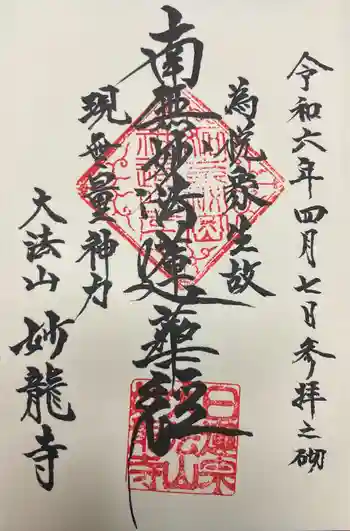 令和六年四月七日参拝之砌
為悦衆生故
南無妙法蓮華経
現無量神力
大法山
妙龍寺